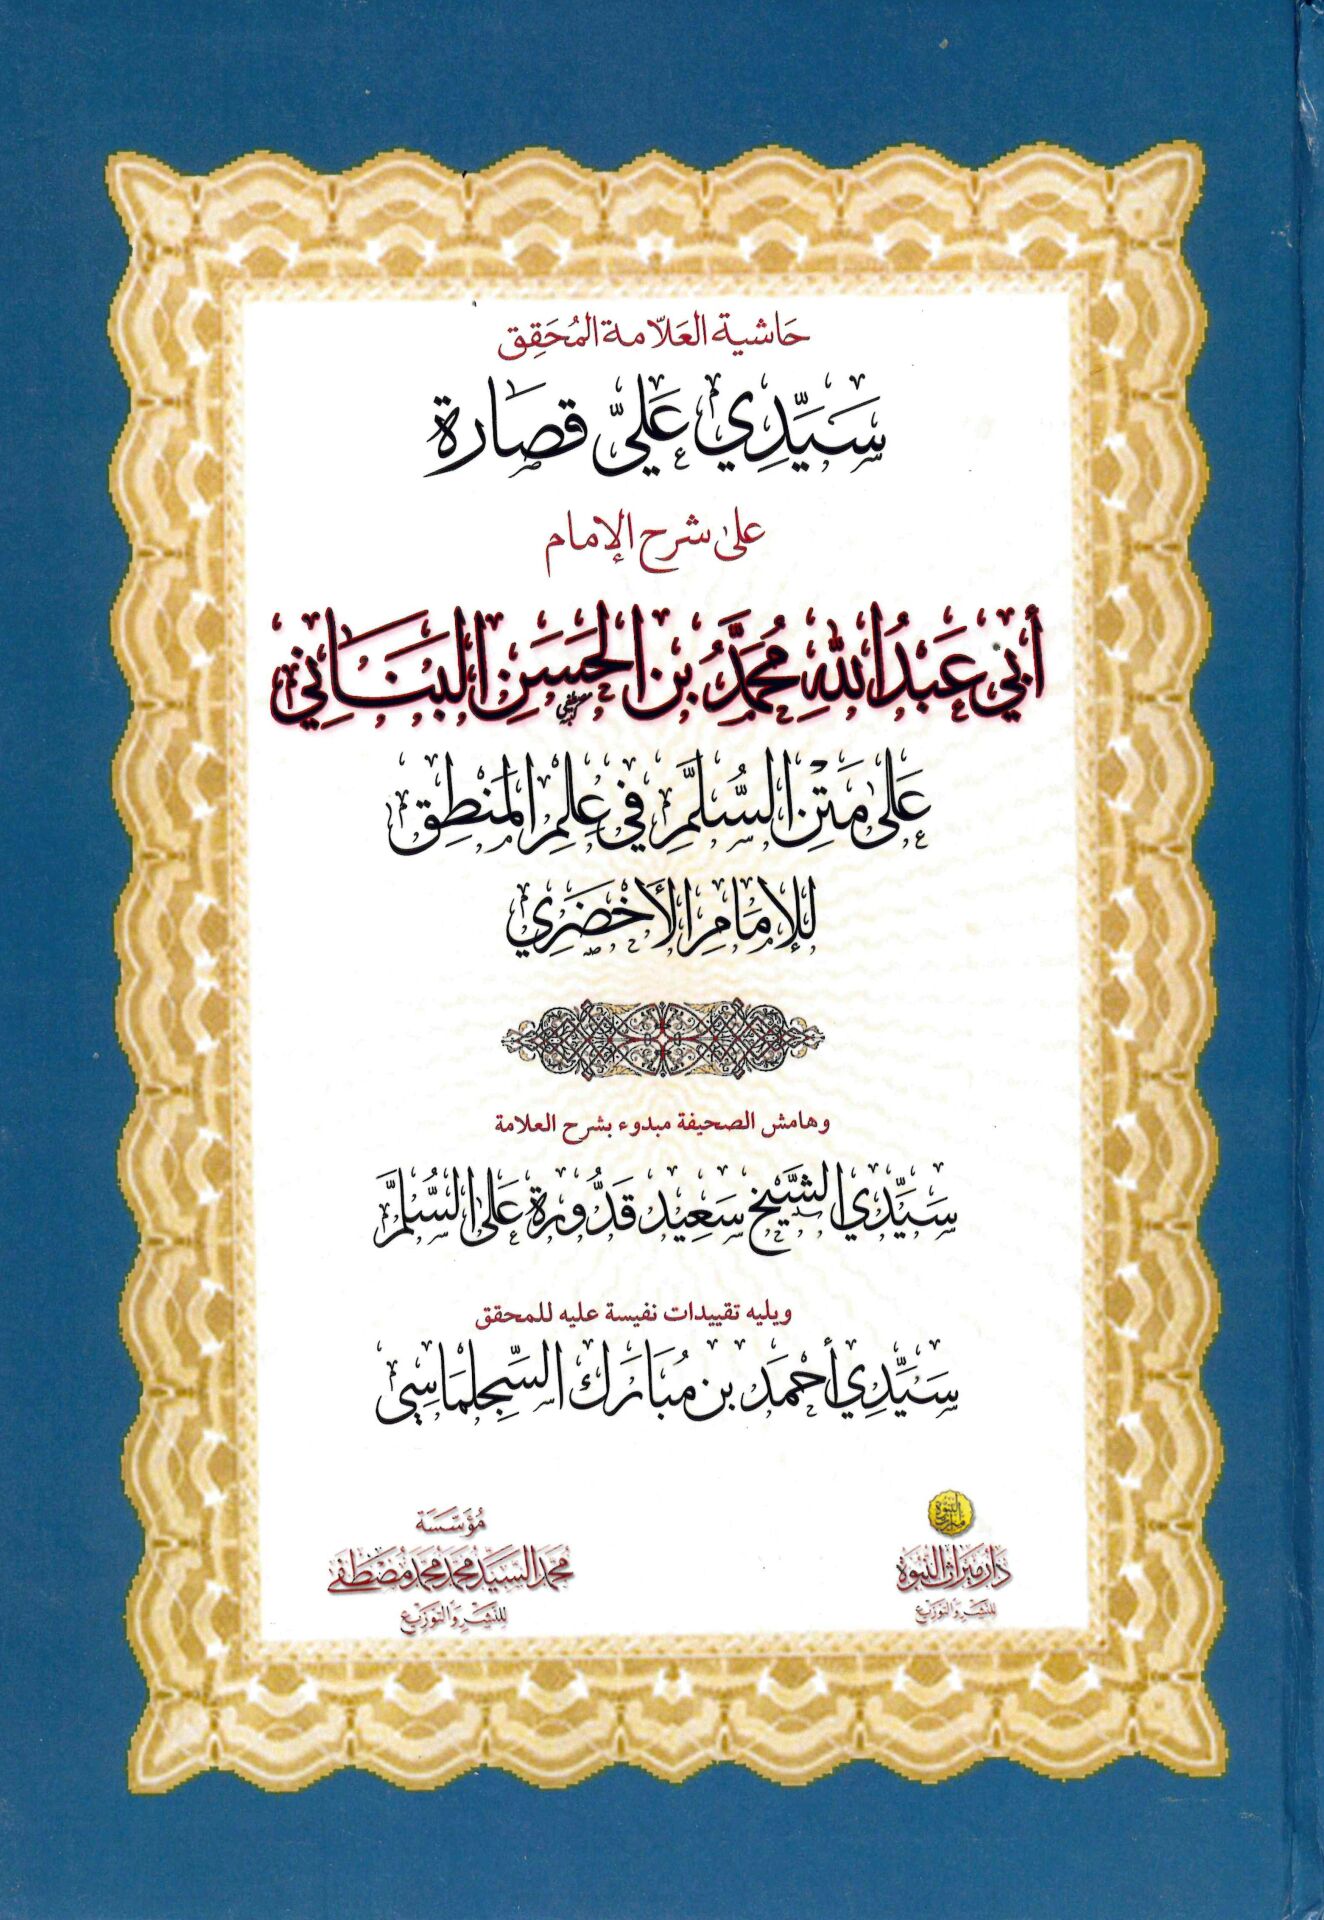 حَاشية العَلّامة المُحَقِق
سَيِّدِي عَليّ قصارة
على شرح الإمام
أبي عَبدُ اللهِ مُحَمَّدُ بن الحَسَنِ البَنَاني
عَلى مَتنِ السُّلَّمِ في عِلمِ المَنْطِقِ
للإمَامِ الأَخْضَرِي
وهامش الصحيفة مبدوء بشرح العلامة
سَيِّدِي الشَّيْخ سَعِيد قَدُّورَة عَلى السُّلَّمَ
ويليه تقييدات نفيسة عليه للمحقق
سَيِّدِي أحمَد بن مُبَارَك السِّجِلمَاسِي
النبوة
ميراث
دَار ميرَاث النُّبُوَة
للنَشِر والتَوزيع
مُؤَسَّسَة
مُحَمَّد السَّيِّد مُحَمَّد مُحَمَّد مُصْطَفى
للنَشِر وَالتَوزيع